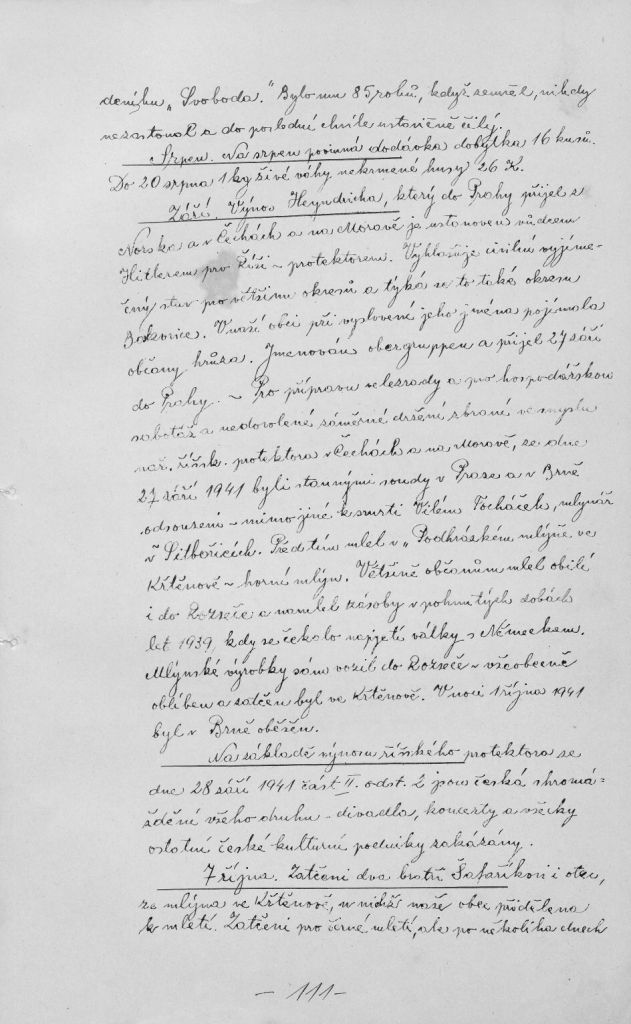 deníku „Svoboda." Bylo mu 85 roků, když zemřel, nikdy
nezastonal a do poslední chvíle ustavičně čilý.
Srpen. Na srpen povinná dodávka dobytka 16 kusů.
Do 20 srpna 1 kg živé váhy nekrmené husy 26 K.
Září. Výnos Heyndricha, který do Prahy přijel z
Norska a v Čechách a na Moravě je ustanoven vůdcem
Hitlerem pro Říši – protektorem. Vyhlašuje civilní vyjíme-
čný stav pro většinu okresů a týká se to také okresu
Boskovice. V naší obci při vyslovení jeho jména pojímala
občany hrůza. Jmenován obergruppen a přijel 27 září
do Prahy. – Pro přípravu velezrady a pro hospodářskou
sabotáž a nedovolené záměrné držení zbraní ve smyslu
nař. říšsk. protektora v Čechách a na Moravě, ze dne
27 září 1941 byli stannými soudy v Praze a v Brně
odsouzeni – mimo jiné k smrti Vilém Tocháček, mlynář
v Šitbořicích. Předtím mlel v „Podhrázském mlýně ve
Křtěnově – horní mlýn. Většině občanům mlel obilí
i do Rozseče a namlel zásoby v pohnutých dobách
let 1939, kdy se čekalo napjetí války s Německem.
Mlýnské výrobky sám vozil do Rozseče – všeobecně
oblíben a zatčen byl ve Křtěnově. V noci 1 října 1941
byl v Brně oběšen.
Na základě výnosu říšského protektora ze
dne 28 září 1941 část II. odst. 2 jsou česká shromá=
ždění všeho druhu – divadla, koncerty a všecky
ostatní české kulturní podniky zakázány.
7 října. Zatčeni dva bratři Šafaříkovi i otec,
ze mlýna ve Křtěnově, v nichž naše obec přidělena
k mletí. Zatčeni pro černé mletí, ale po několika dnech
– 111 –